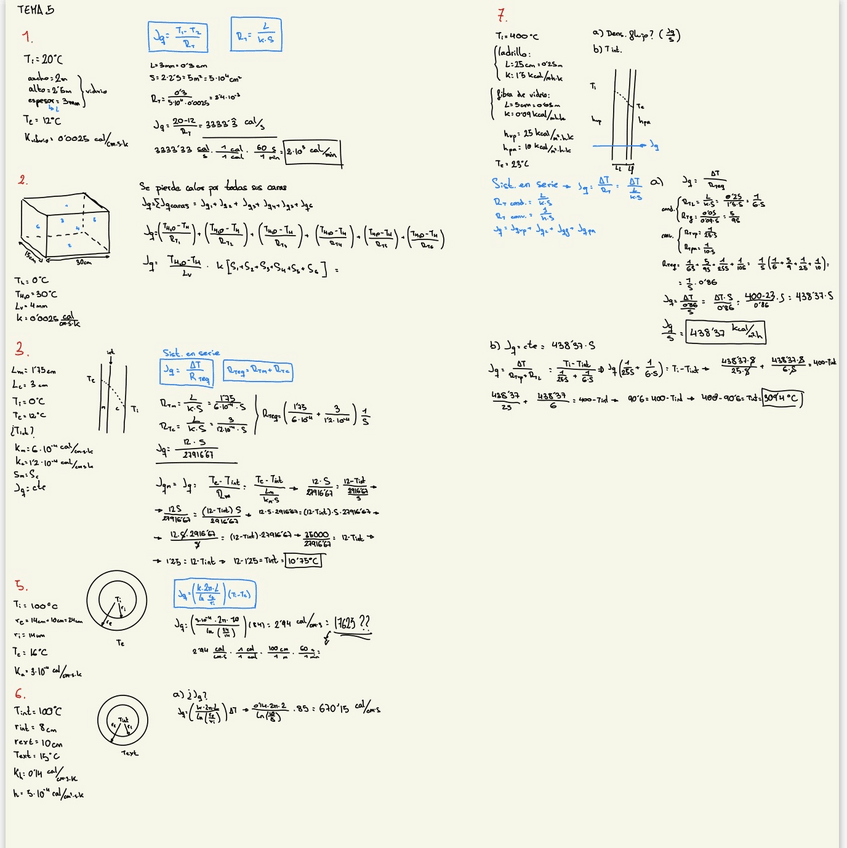 TEMA 5
1.
Jq = T1-T2 / RT
RT = L / k·S
Ti = 20°C
ancho = 2m
alto = 2'5m
espesor = 3mm
vidrio
↳ L
Te = 12°C
Kvidrio = 0'0025 cal/cm·s·k
L = 3mm = 0'3 cm
S = 2·2'5 = 5m² = 5·10⁴ cm²
RT = 0'3 / 5·10⁴·0'0025 = 2'4·10⁻³
Jq = 20-12 / RT = 3333'3 cal/s
3333'33 cal/s · 1 cal/1 cal · 60 s/1 min = 2·10⁵ cal/min
2.
Se pierde calor por todas sus caras
Jq = ΣJq caras = Jq1 + Jq2 + Jq3 + Jq4 + Jq5 + Jq6
Jq = (TH2O-TH / RT1) + (TH2O-TH / RT2) + (TH2O-TH / RT3) + (TH2O-TH / RT4) + (TH2O-TH / RT5) + (TH2O-TH / RT6)
Jq = TH2O-TH / Lv · k [S1+S2+S3+S4+S5+S6] =
30cm
TH = 0°C
TH2O = 30°C
Lv = 4mm
k = 0'0025 cal/cm·s·k
3.
Lm = 1'75cm
Lc = 3 cm
Ti = 0°C
Te = 12°C
¿Tint?
Km = 6·10⁻⁴ cal/cm·s·k
Kc = 1'2·10⁻⁴ cal/cm·s·k
Sm = Sc
Jq = cte
int
Te
Ti
m
c
Sist. en serie
Jq = ΔT / RTeq
RTeq = RTm + RTc
RTm = L / k·S = 1'75 / 6·10⁻⁴·S
RTc = L / k·S = 3 / 1'2·10⁻⁴·S
RTeq = (1'75 / 6·10⁻⁴ + 3 / 1'2·10⁻⁴) 1/S
Jq = 12·S / 27916'67
Jqm = Jq = Te-Tint / RTm = Te-Tint / Lm/km·S → 12·S / 27916'67 = 12-Tint / 2916'67/S →
→ 12S / 27916'67 = (12-Tint)S / 2916'67 → 12·S·2916'67 = (12-Tint)·S·27916'67 →
→ 12·S·2916'67 / S = (12-Tint)·27916'67 → 35000 / 27916'67 = 12-Tint →
→ 1'25 = 12-Tint → 12-1'25 = Tint = 10'75°C
5.
Ti = 100°C
re = 14cm+10cm = 24cm
ri = 14cm
Te = 16°C
Ka = 3·10⁻⁴ cal/cm·s·k
Ti
ri
re
Te
Jq = (k·2π·L / ln re/ri)(Ti-Te)
2'94 cal/cm·s = 17625 ??
2'94 cal/cm·s · 1 cal/1 cal · 100 cm/1 m · 60 s/1 min =
6.
Tint = 100°C
rint = 8cm
rext = 10cm
Text = 15°C
h = 5·10⁻⁴ cal/cm²·s·k
Tint
Text
a) ¿Jq?
ΔT → 0'14·2π·2 / ln(10/8) · 85 = 670'15 cal/cm·s
7.
Ti = 400°C
ladrillo:
L = 25cm = 0'25m
K = 1'5 kcal/m·h·k
fibra de vidrio:
L = 5cm = 0'05m
K = 0'09 kcal/m·h·k
hrp = 25 kcal/m²·h·k
hpa = 10 kcal/m²·h·k
Te = 23°C
a) Dens. flujo? (Jq/S)
b) Tint.
Ti
Te
hrp
hpa
Jq
Sist. en serie → Jq = ΔT / RT = ΔT / L/k·S
RT cond. = L / k·S
a)
Jq = ΔT / RTeq
cond.
RTL = L / k·S = 0'25 / 1'5·S = 1 / 6·S
RTf = 0'05 / 0'09·S = 5 / 9S
conv.
RTrp = 1 / 25S
RTpa = 1 / 10S
RTeq = 1/6S + 5/9S + 1/25S + 1/10S = 1/S (1/6 + 5/9 + 1/25 + 1/10) =
= 1/S · 0'86
Jq = ΔT / 0'86/S = ΔT·S / 0'86 = 400-23 / 0'86 · S = 438'37·S
Jq/S = 438'37 kcal/m²·h
b) Jq = cte = 438'37·S
Jq = ΔT / RTrp+RTL = Ti-Tint / 1/25S + 1/6·S → Jq (1/25S + 1/6·S) = Ti-Tint → 438'37·S / 25·S + 438'37·S / 6·S = 400-Tint
438'37 / 25 + 438'37 / 6 = 400-Tint → 90'6 = 400-Tint → 400-90'6 = Tint = 309'4°C